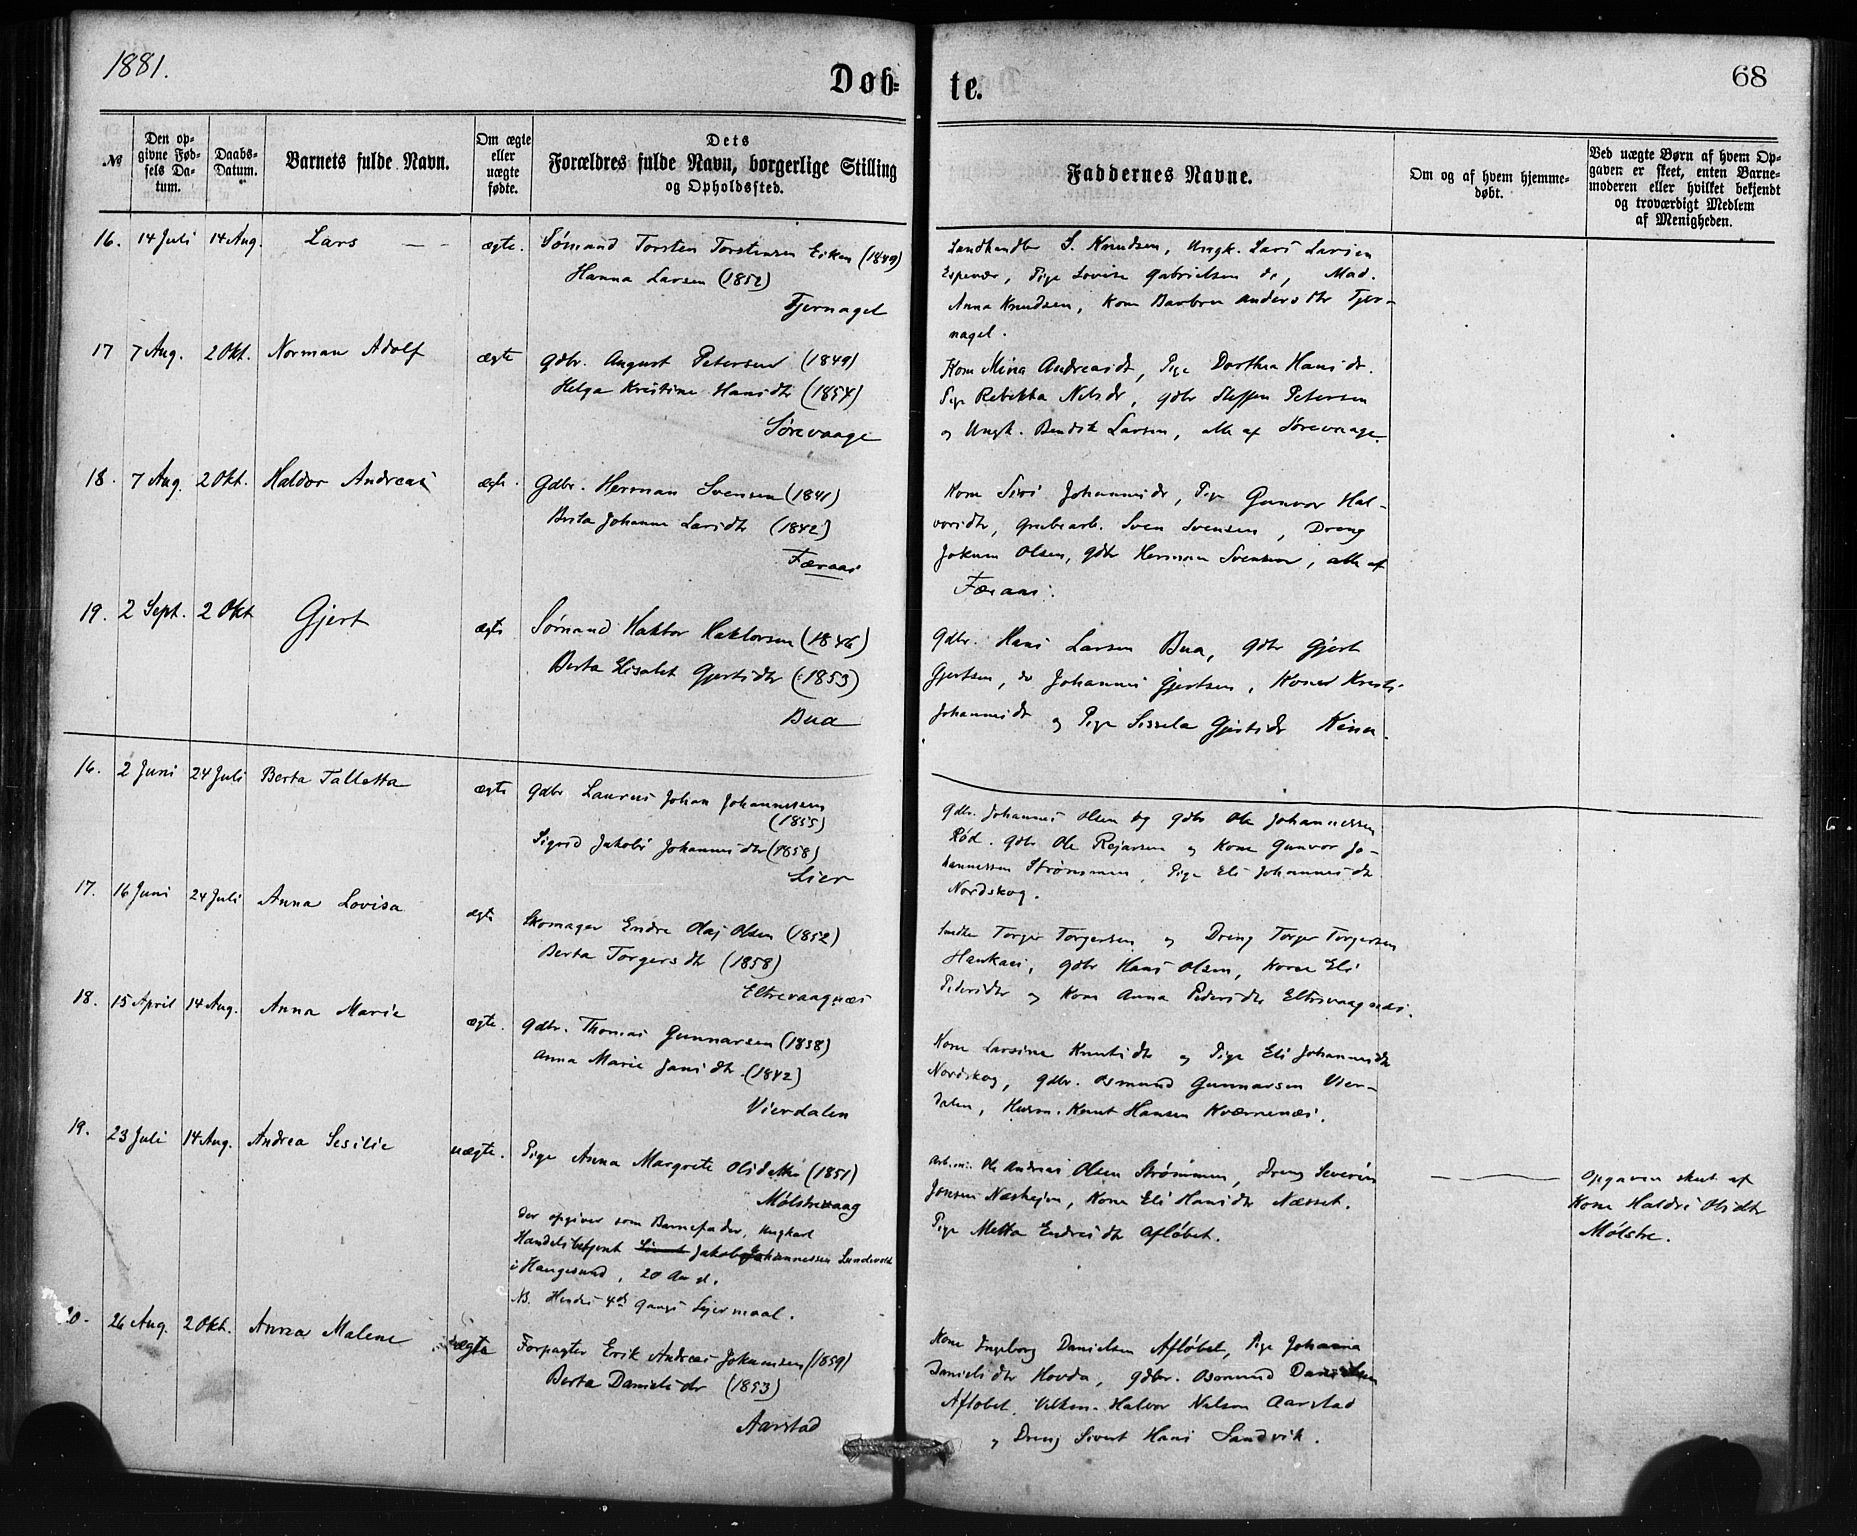 1881.
Døb=
te.
68
№
Den op-
givne Fød-
sels Da-
tum.
Daabs-
Datum.
Barnets fulde Navn.
Om ægte
eller
uægte
fødte.
Dets
Forældres fulde Navn, borgerlige Stilling
og Opholdssted.
Faddernes Navne.
Om og af hvem hjemme-
døbt.
Ved uægte Børn af hvem Op-
gaven er skeet, enten Barne-
moderen eller hvilket bekjendt
og troværdigt Medlem
af Menigheden.
16. 14 Juli 14 Aug. Lars — — ægte. Sømand Torsten Torstensen Eiken (1849)
Hanna Larsen (1852)
Tjernagel
Landhandler S. Knudsen, Ungk. Lars Larsen
Espevær, Pige Lovise Gabrielsen do, Mad.
Anna Knudsen, Kone Barbra Andersdtr Tjer-
nagel.
17 7 Aug. 2 Okt. Norman Adolf ægte Gdbr. August Petersen (1849)
Helga Kristine Hansdtr (1854)
Sørevaage
Kone Mina Andreasdtr, Pige Dorthea Hansdtr.
Pige Rebekka Nelsdtr, Gdbr Steffen Petersen
og Ungk. Bendik Larsen, alle af Sørevaage.
18. 7 Aug. 2 Okt. Haldor Andreas ægte. Gdbr. Herman Svensen (1841)
Brita Johanne Larsdtr (1842)
Færaas
Kone Siri Johannesdtr, Pige Gunvor Hal-
vorsdtr, Grubearb. Sven Svensen, Dreng
Jokum Olsen, Gdbr Herman Svensen, alle af
Færaas.
19. 2 Sept. 2 Okt Gjert ægte Sømand Haktor Haktorsen (1846)
Berta Elisabet Gjertsdtr (1853)
Bua
Gdbr. Hans Larsen Bua, Gdbr Gjert
Gjertsen, do Johannes Gjertsen, Kone
Johannesdtr og Pige Sissela Gjertsdtr
16. 2 Juni 24 Juli Berta Talletta ægte Gdbr Laurus Johan Johannessen
(1855)
Sigrid Jakobi Johannesdtr (1858)
Lier
Gdbr. Johannes Olsen og Gdbr Ole Johannessen
Rød. Gdbr Ole Rejarsen og Kone Gunvor Jo-
hannessen Strømmen, Pige Eli Johannesdtr
Nordskog.
17. 16 Juni 24 Juli Anna Lovisa ægte Skomager Endre Olaj Olsen (1852)
Berta Torgersdtr (1858)
Eltrevaagnæs
Torger Torgersen og Dreng Torger Torgersen
Haukaas, Gdbr Hans Olsen, Kone Eli
Pedersdtr og Kone Anna Pedersdtr Eltrevaagnæs.
18. 15 April 14 Aug. Anna Marie ægte. Gdbr. Thomas Gunnarsen (1838)
Anna Marie Jansdtr. (1842)
Vierdalen
Kone Larsine Knutsdtr og Pige Eli Johannesdtr
Nordskog, Gdbr. Osmund Gunnarsen Vier-
dalen, Husm. Knut Hansen Kværnenæs.
19. 23 Juli 14 Aug. Andrea Sesilie uægte. Pige Anna Margrete Olsdatter (1851)
Mølstrevaag
Der opgiver som Barnefader, Ungkarl
Handelsbetjent Jakob Johannessen
i Haugesund, 20 Aar gl.
NB. Hendes 4de Gangs Lejermaal.
Arb.m. Ole Andreas Olsen Strømmen, Dreng Severin
Jensen Næshejen, Kone Eli Hansdtr Næsset.
Pige Metta Endresdtr Afløbet.
Opgaven skeet af
Kone Haldri Olsdtr
Mølstre.
20. 26 Aug. 2 Okt. Anna Malene ægte Forpagter Erik Andreas Jokumsen (1859)
Berta Danielsdtr (1853)
Aarstad
Kone Ingeborg Danielsen Afløbet, Pige Johanna
Danielsdtr Hovda, Gdbr. Osmund Danielsen
Afløbet. Halvor Nelson Aarstad
og Dreng Sivert Hans Sandvik.